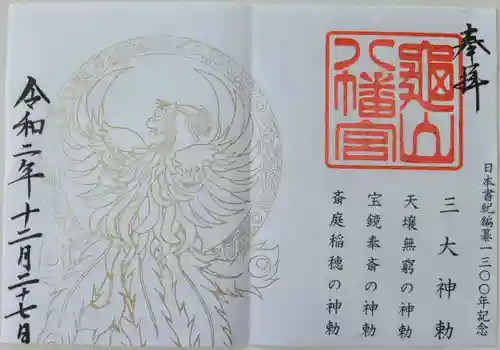 奉拝
龜山八幡宮
日本書紀編纂一三〇〇年記念
三大神勅
天壌無窮の神勅
宝鏡奉斎の神勅
斎庭稲穂の神勅
令和二年十二月二十七日